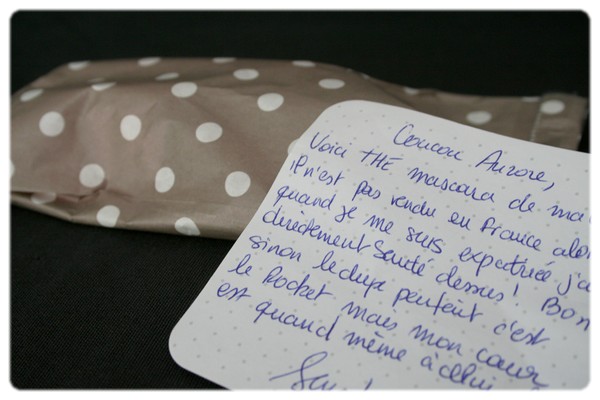 Coucou Aurore,
Voici THE mascara de ma
IP n'est pas vendu en France alo
quand je me suis expatriée j'a
directement sauté dessus ! Bon
sinon le dupe peutent c'est
le Rocket mais mon coeur
est quand même à celui